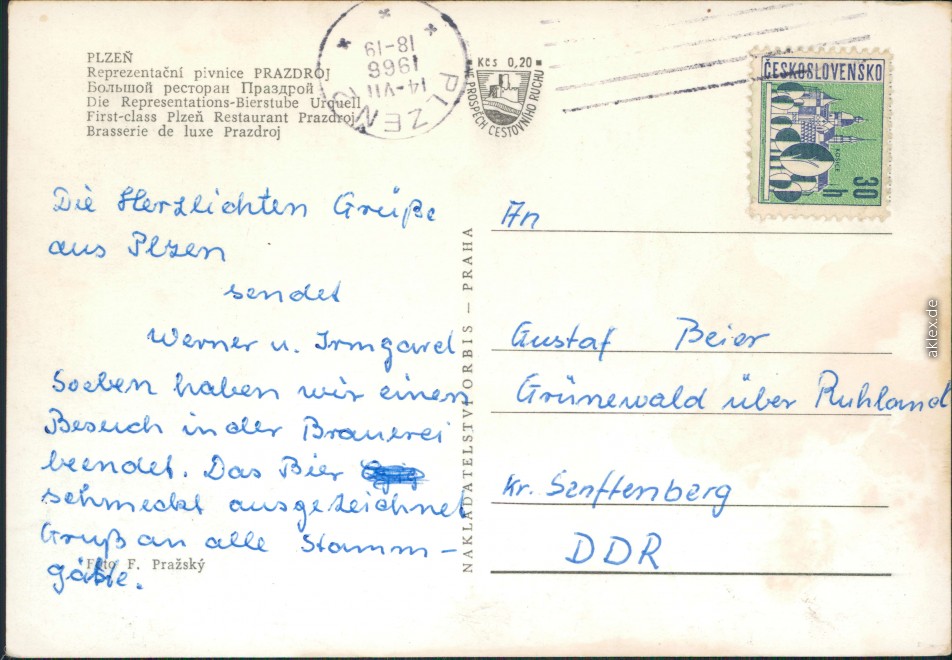 PLZEŇ
Reprezentační pivnice PRAZDROJ
Большой ресторан Праздрой
Die Representations-Bierstube Urquell
First-class Plzeň Restaurant Prazdroj
Brasserie de luxe Prazdroj
PLZEŇ
14-VII
1966
18-19
Kčs 0,20
VE PROSPĚCH CESTOVNÍHO RUCHU
ČESKOSLOVENSKO
30 h
Die Herzlichten Grüße
aus Plzen
sendet
Werner u. Irmgard
Soeben haben wir einen
Besuch in der Brauerei
beendet. Das Bier
schmeckt ausgezeichnet
Gruß an alle Stamm-
gäste.
Foto F. Pražský
NAKLADATELSTVÍ ORBIS — PRAHA
An
Gustaf Beier
Grünewald über Ruhland
Kr. Senftenberg
DDR
aklex.de